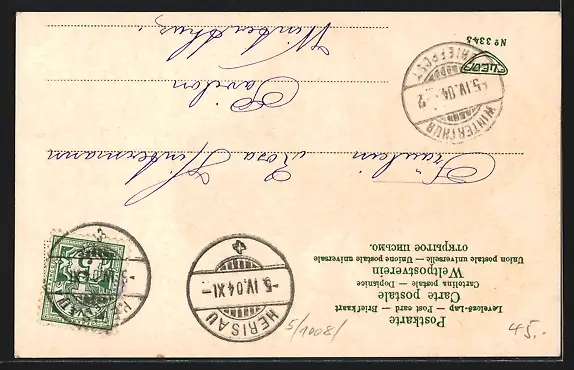 Postkarte
Levelező-Lap — Post card — Briefkaart
Carte postale
Cartolina postale — Dopisnice
Weltpostverein
Union postale universelle — Unione postale universale
ОТКРЫТОЕ ПИСЬМО.
HERISAU
-5.IV.04 XI-
Fräulein Rosa Hintermann
Pavillon
Winterthur
WINTERTHUR
BRIEFPOST
-5.IV.04.-2
Nº 3345
5/1008/
45.-